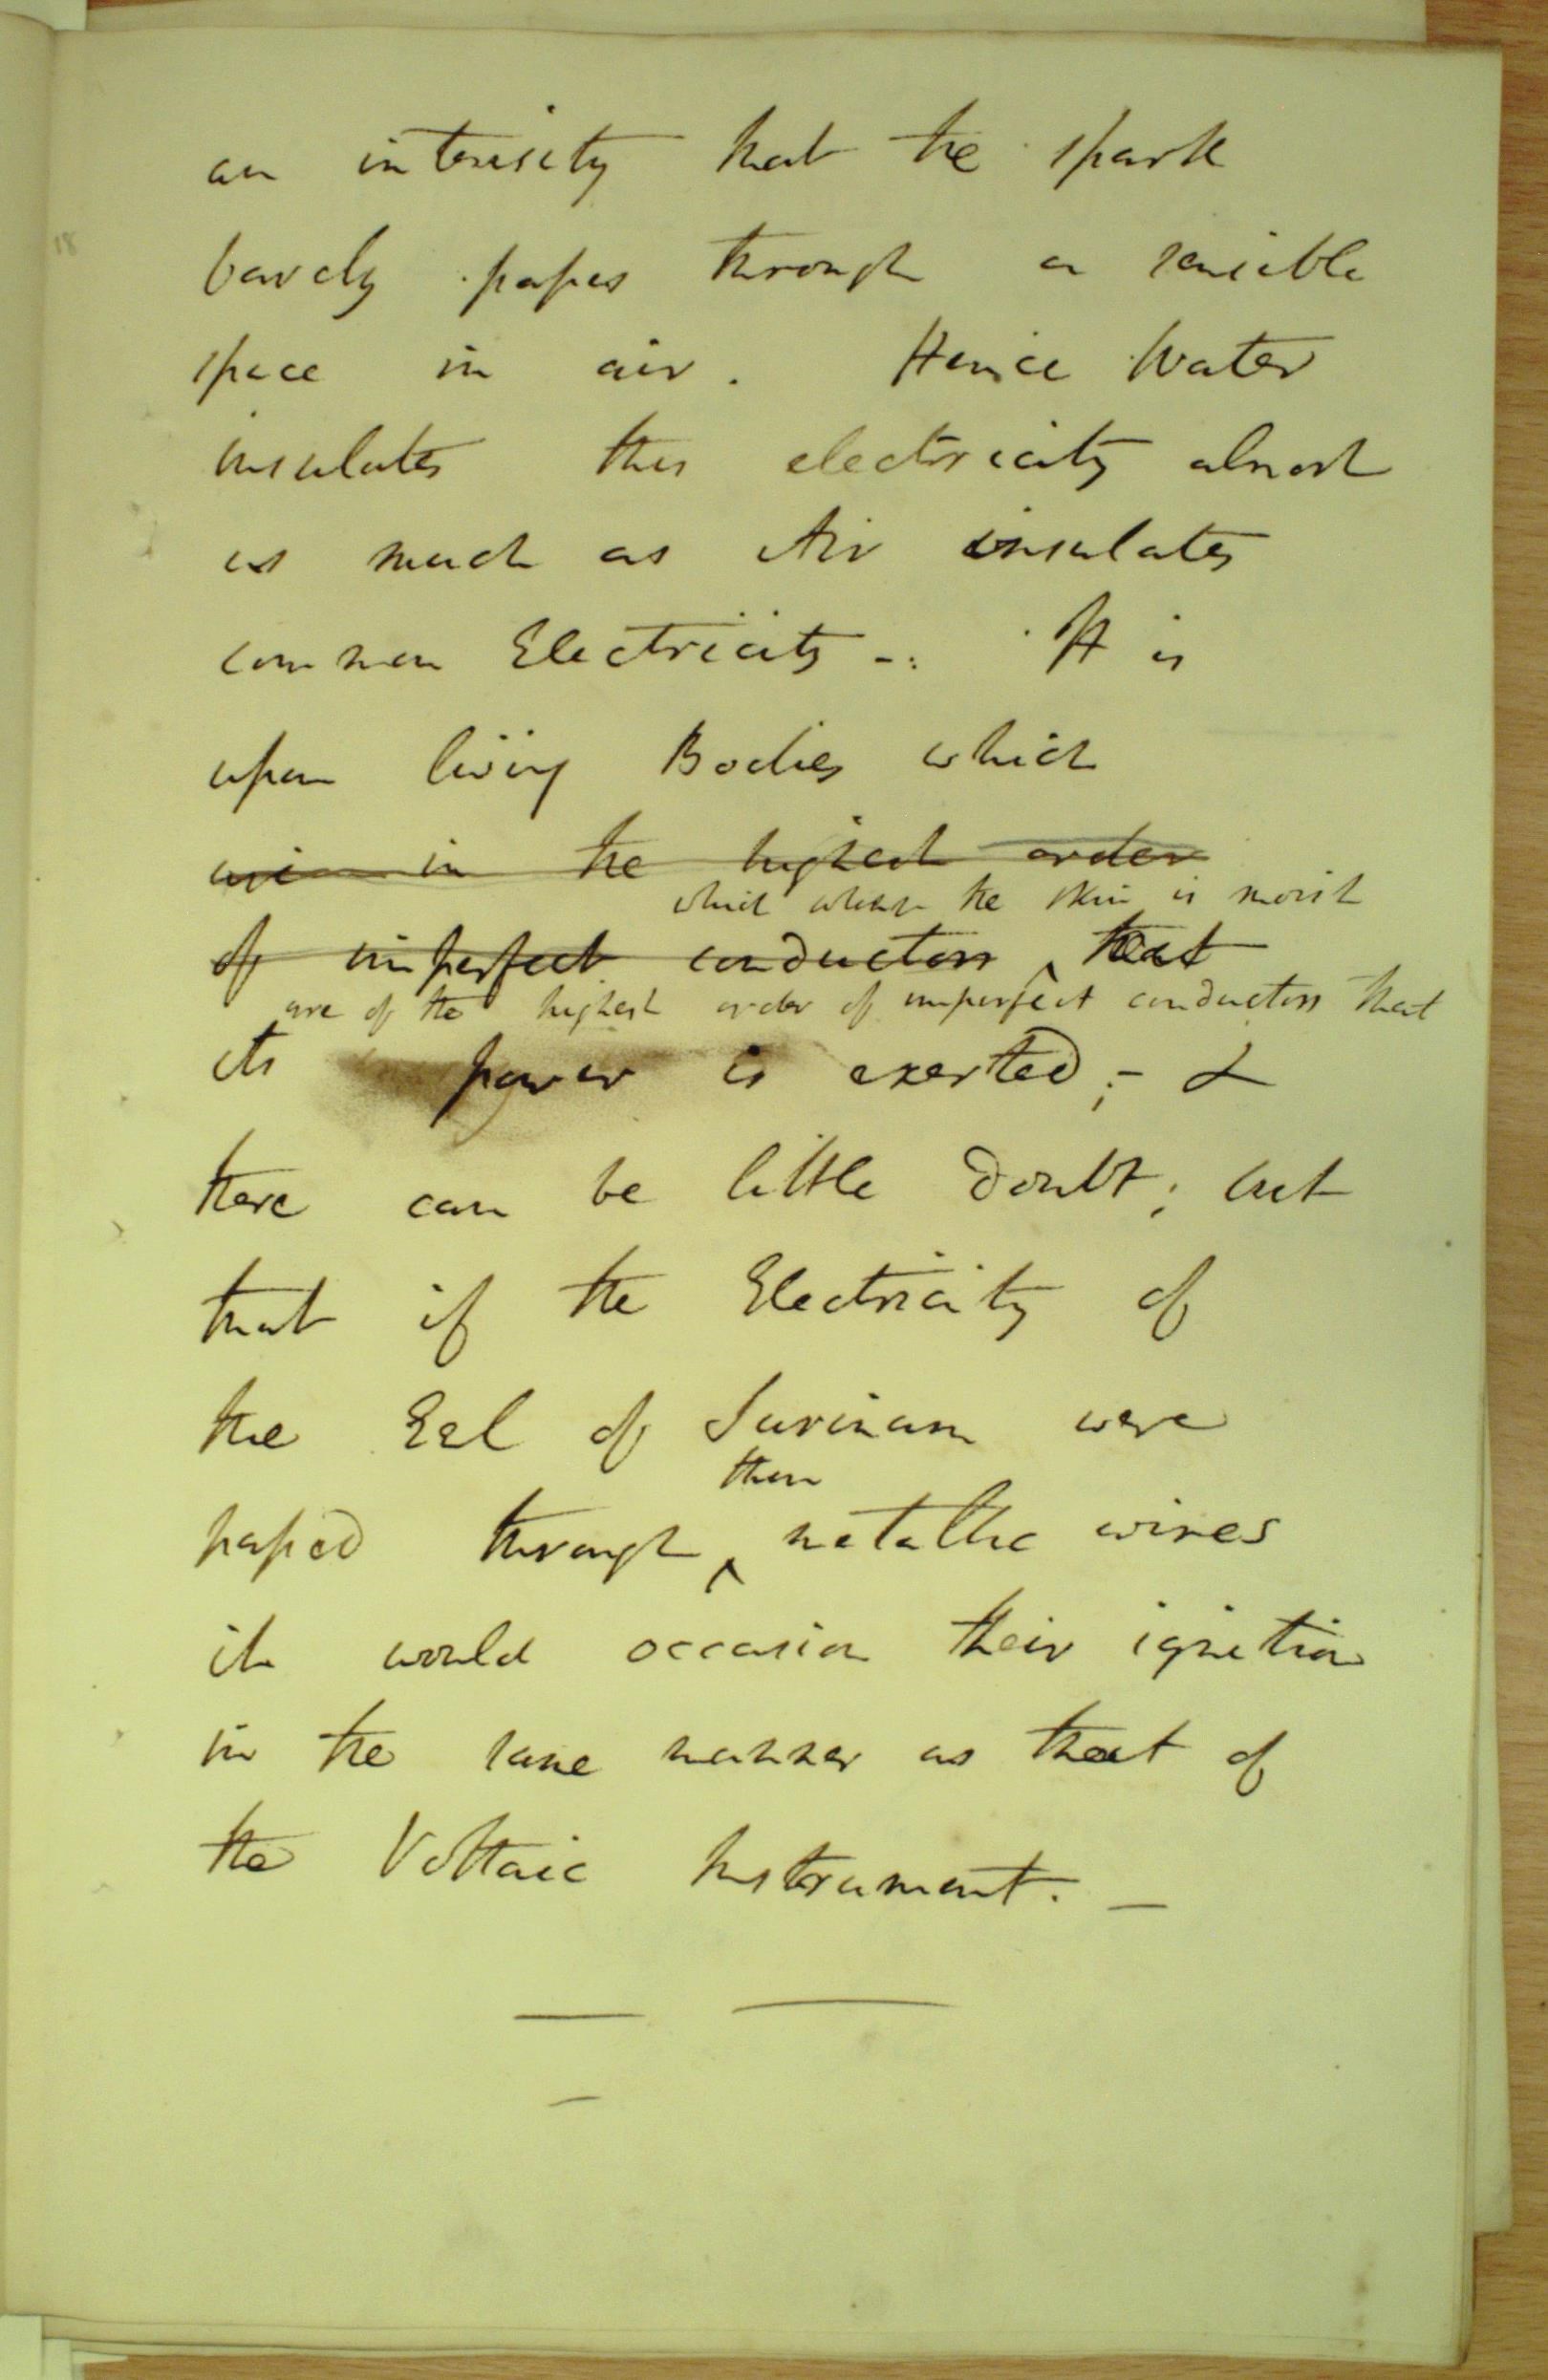 18
an intensity that the spark
barely passes through a sensible
space in air. Hence Water
insulates this electricity almost
as much as Air insulates
common Electricity -. It is
upon living Bodies which
are in the highest order
which when the skin is moist
of imperfect conductors ^ that
are of the highest order of imperfect conductors that
its power is exerted; - &
there can be little doubt; but
that if the Electricity of
the Eel of Surinam were
thin
passed through ^ metallic wires
it would occasion their ignition
in the same manner as that of
the Voltaic Instrument. —